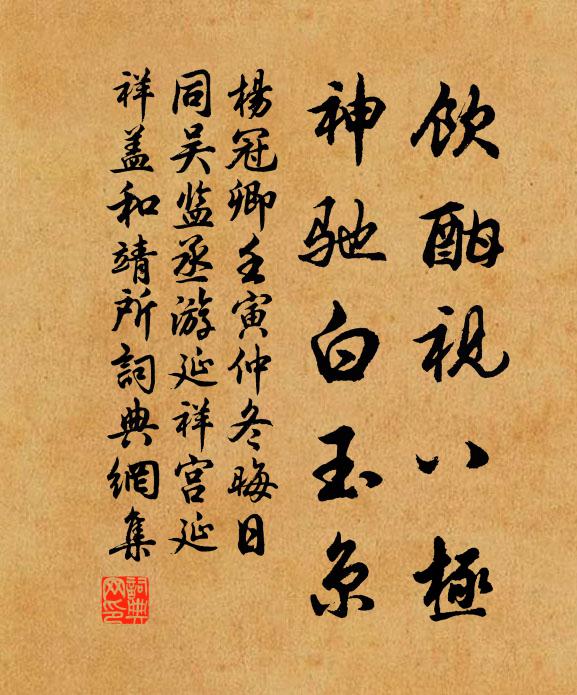 飲酣視八極
神馳白玉京
楊冠卿壬寅仲冬晦日
同吴监丞游延祥宫延
祥盖和靖所詞典網集
詞典网印